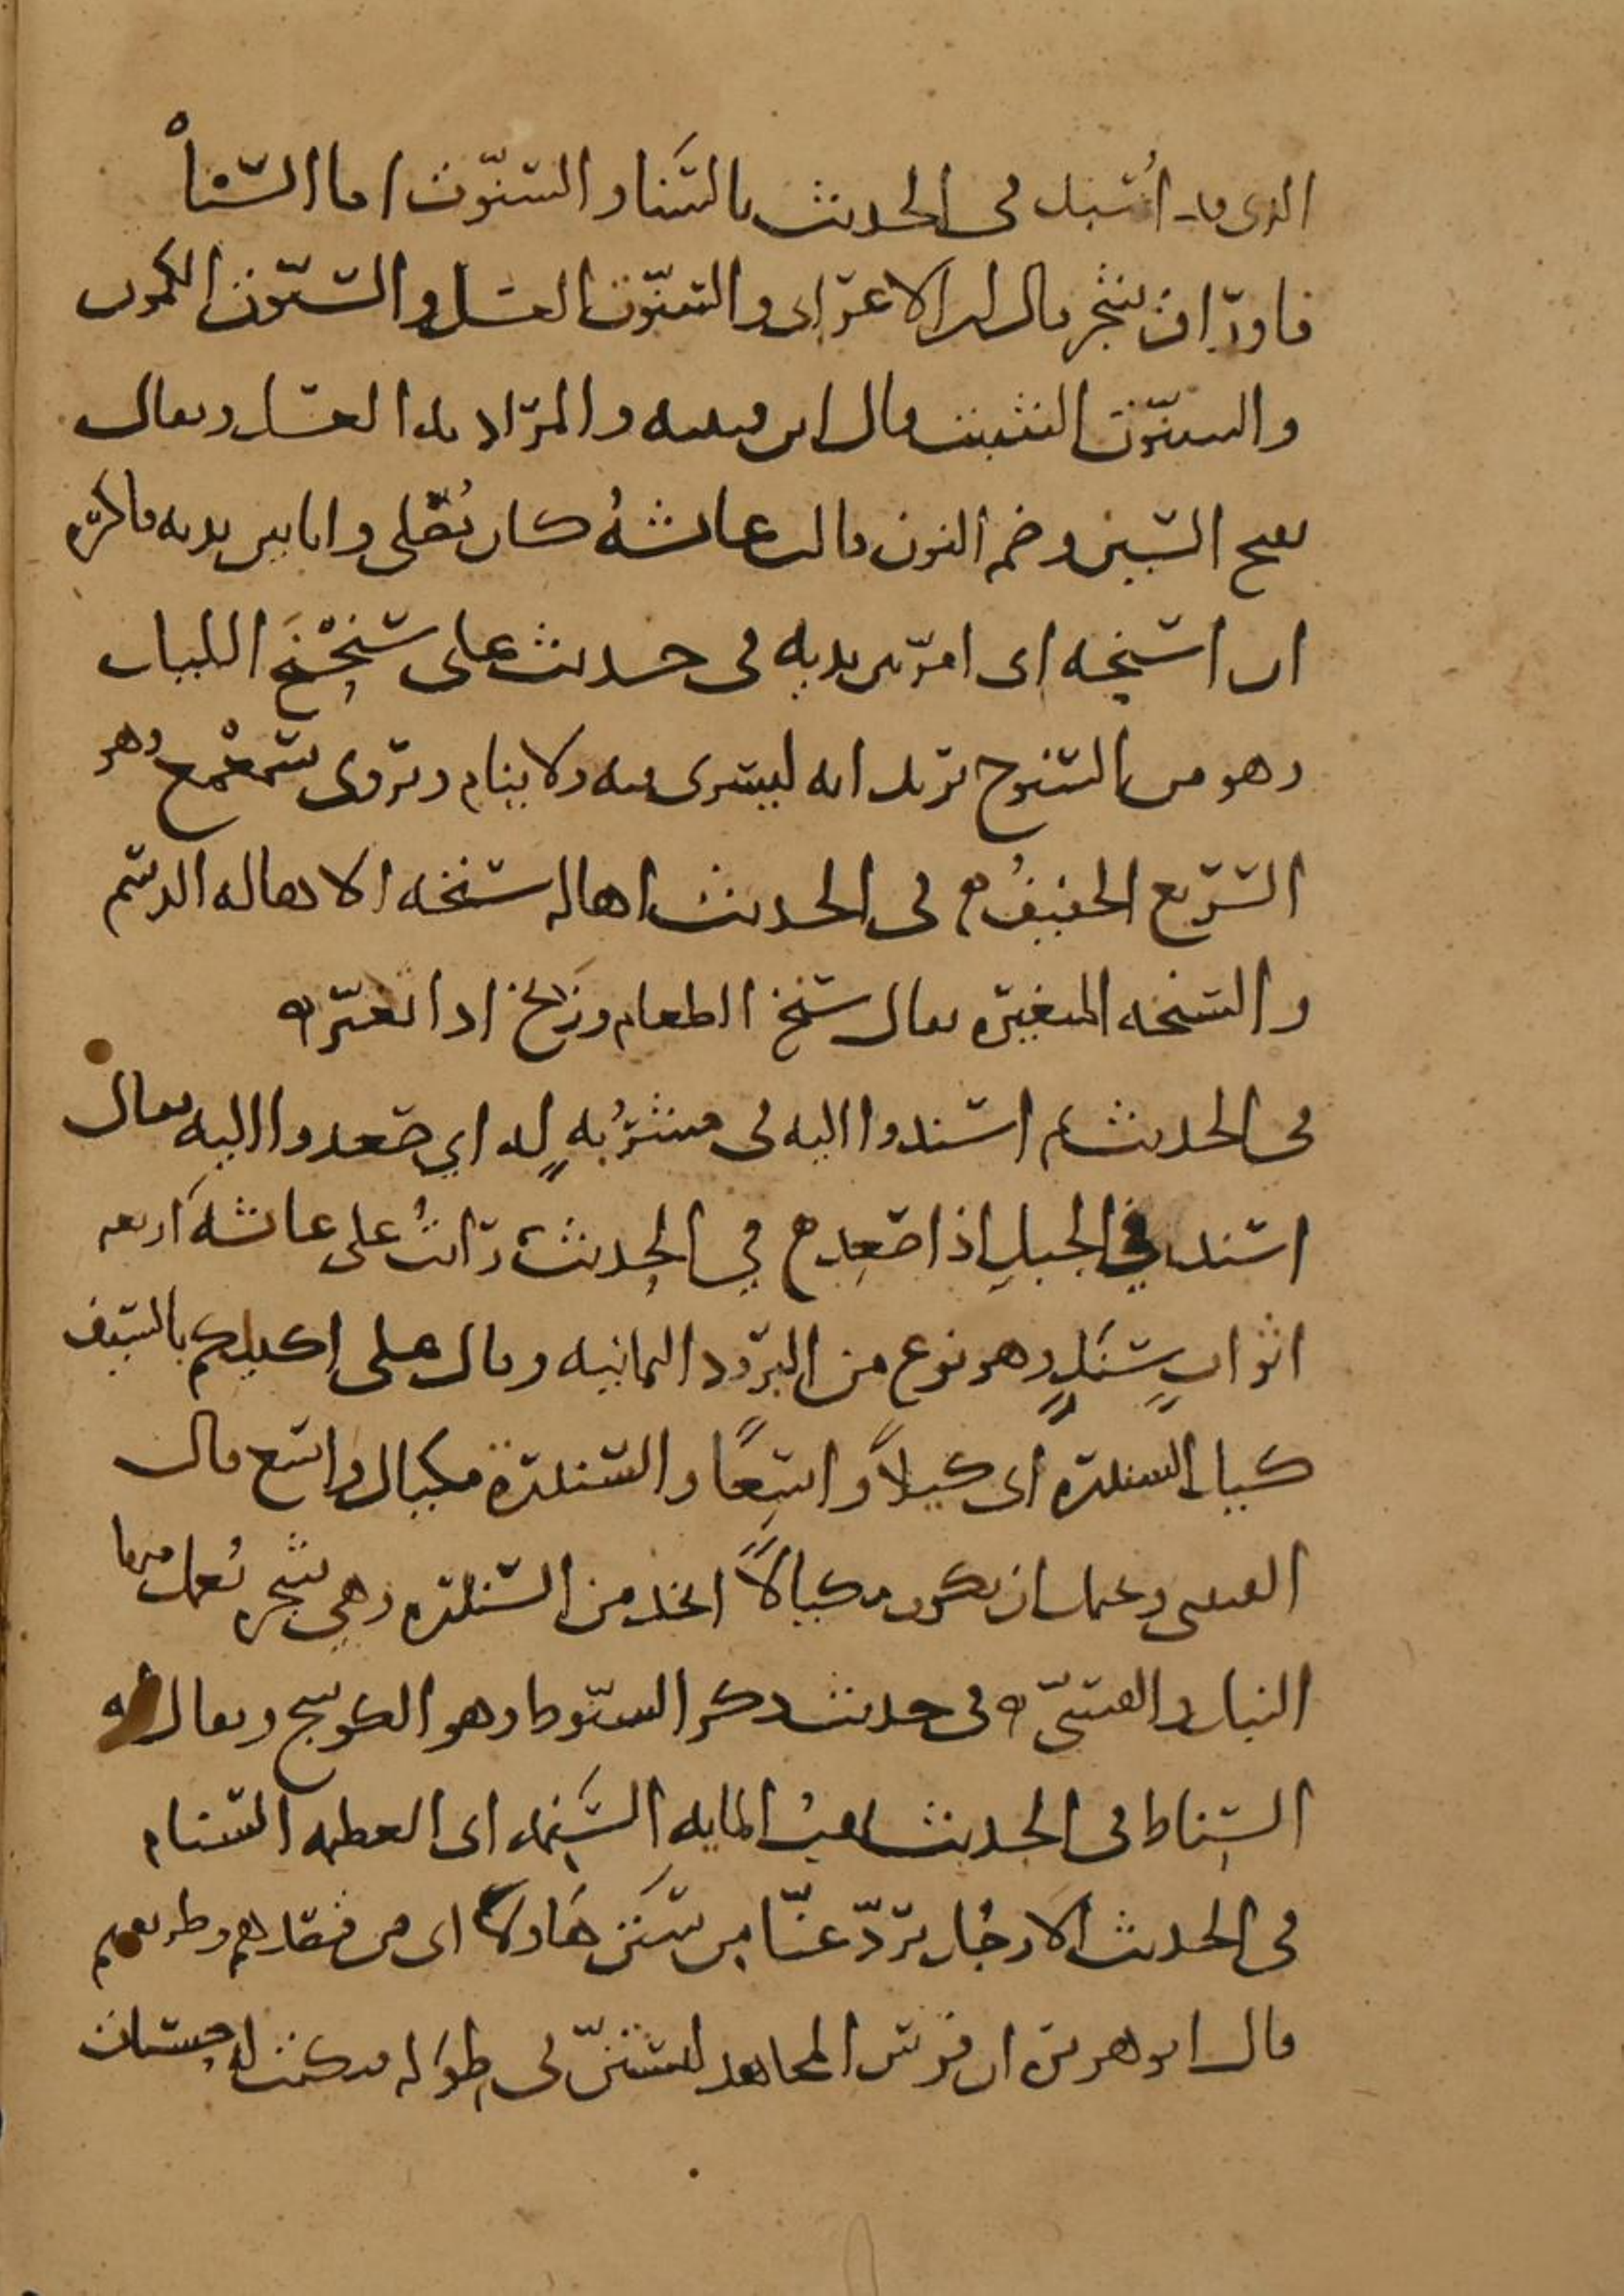 الذي قد اسبل في الحديث بالسنا والسنوت اما السنا
فاوراق شجر قال ابن الاعرابي والسنوت العسل والسنوت الكمون
والسنوت الشبت قال ابن قتيبه والمراد هذا العسل ويقال
بفتح السين وضم النون قالت عائشة كان يصلي وانا بين يديه فاكره
ان اسنحه اي امر بين يديه في حديث علي سَنَحْنَح الليل
وهو من السنوح تريد انه ليسري فيه ولا ينام ويروى سمعمع وهو
السريع الخفيف في الحديث اهاله سنخه الاهاله الدسم
والسنخه المتغيره يقال سنخ الطعام وزنخ اذا تغير
في الحديث ثم اسندوا اليه في مشربه له اي صعدوا اليه يقال
اسند في الجبل اذا صعد في الحديث رايت على عائشة اربعه
اثواب سند وهو نوع من البرود اليمانيه وقال علي اكيلكم بالسيف
كيل السندره اي كيلا واسعا والسندرة مكيال واسع قال
القتيبي ويحتمل ان يكون مكيالا اتخذ من السندره وهي شجره يعمل منها
النبل والقسي في حديث ذكر السنوط وهو الكوسج ويقال له
السناط في الحديث يهب المايه السنمه اي العظيمه السنام
في الحديث الا رجل يرد عنا من سنن هاولا اي من قصدهم وطريقهم
قال ابو هريره ان فرس المجاهد ليستن في طوله فيكتب له حسنات